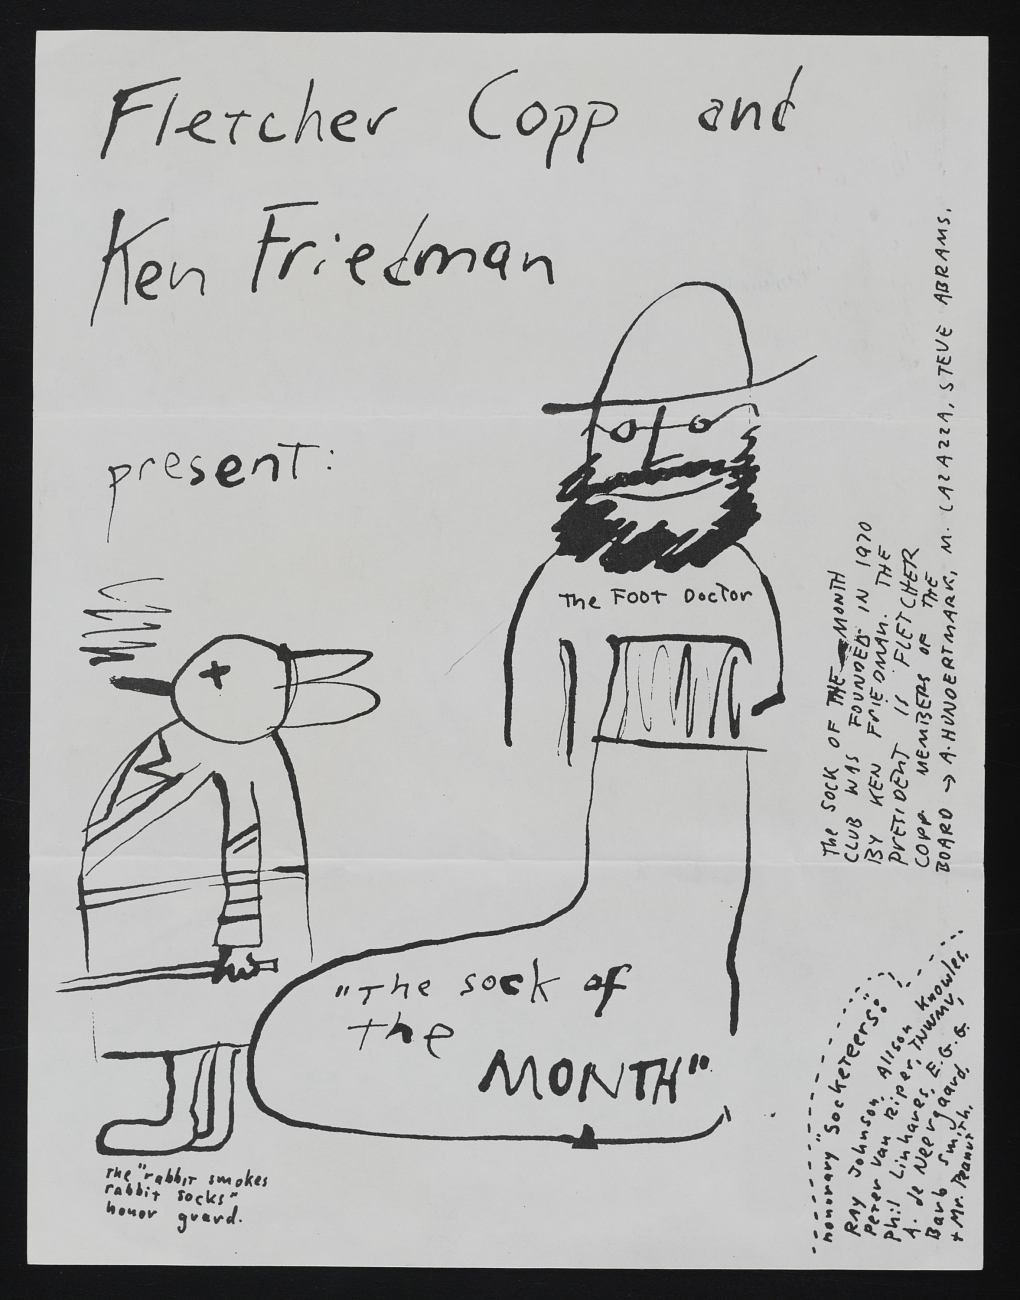 Fletcher Copp and
Ken Friedman
present:
The Foot Doctor
"The sock of
the
MONTH"
The "rabbit smokes
rabbit socks"
honor guard.
The SOCK OF THE MONTH
CLUB WAS FOUNDED IN 1970
BY KEN FRIEDMAN. THE
PRESIDENT IS FLETCHER
COPP. MEMBERS OF THE
BOARD → A. HUNDERTMARK, M. LAZAZZA, STEVE ABRAMS.
honorary "Socketeers":
RAY Johnson, Alison Knowles,
Peter Van Riper, TNWMV,
Phil Linhares, E.G.G.
A. de Neergaard,
Barb Smith.
+ Mr. Peanut